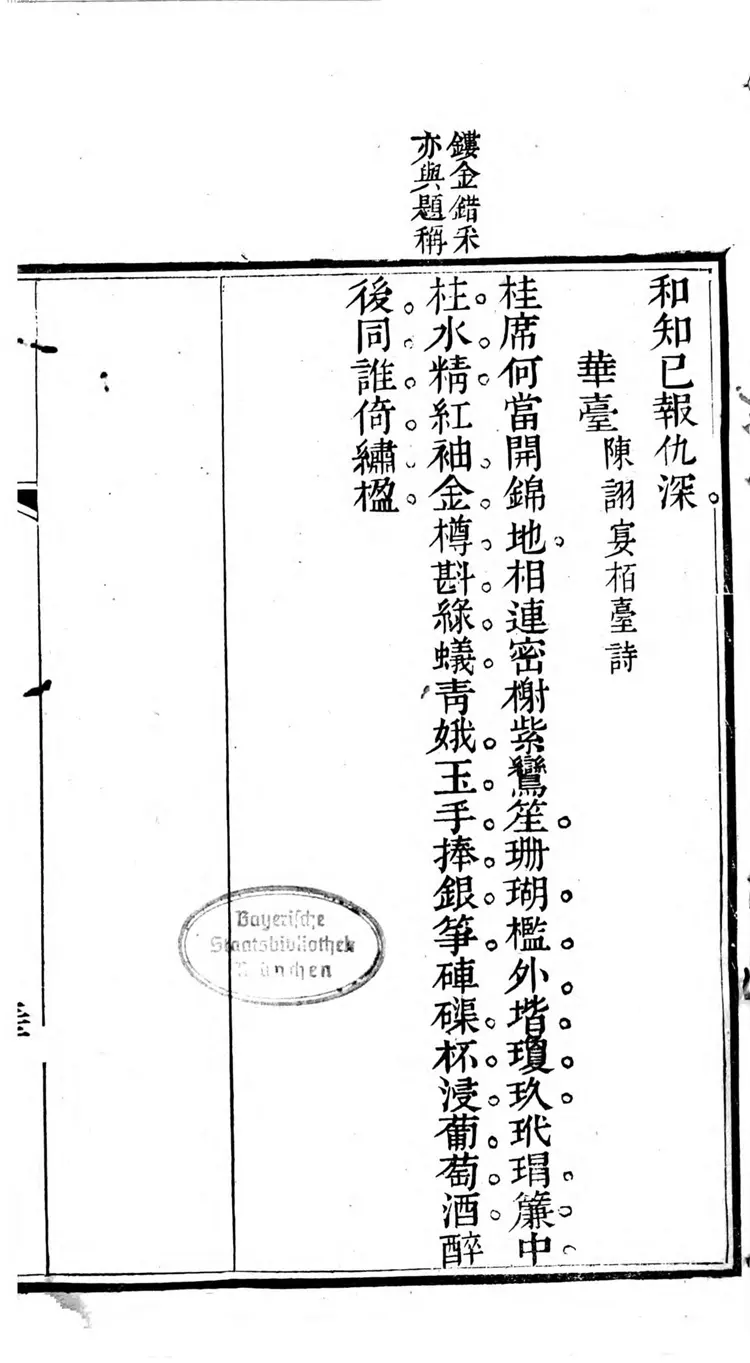 鏤金錯采
亦與題稱
和知已報仇深
華臺陳詡宴栢臺詩
桂席何當開錦地相連密榭紫鸞笙珊瑚檻外堦瓊玖玳瑁簾中
柱水精紅袖金樽斟綠蟻靑娥玉手捧銀箏硨磲杯浸葡萄酒醉
後同誰倚繡楹
Bayerische
Staatsbibliothek
München